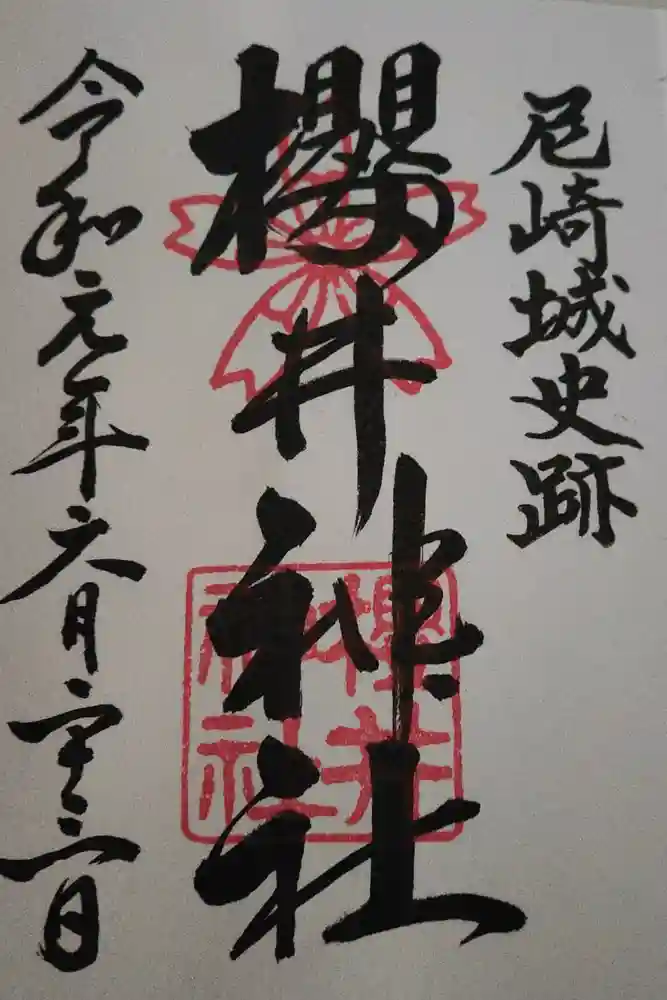 尼崎城史跡
櫻井神社
令和元年六月二十三日
櫻井
神社